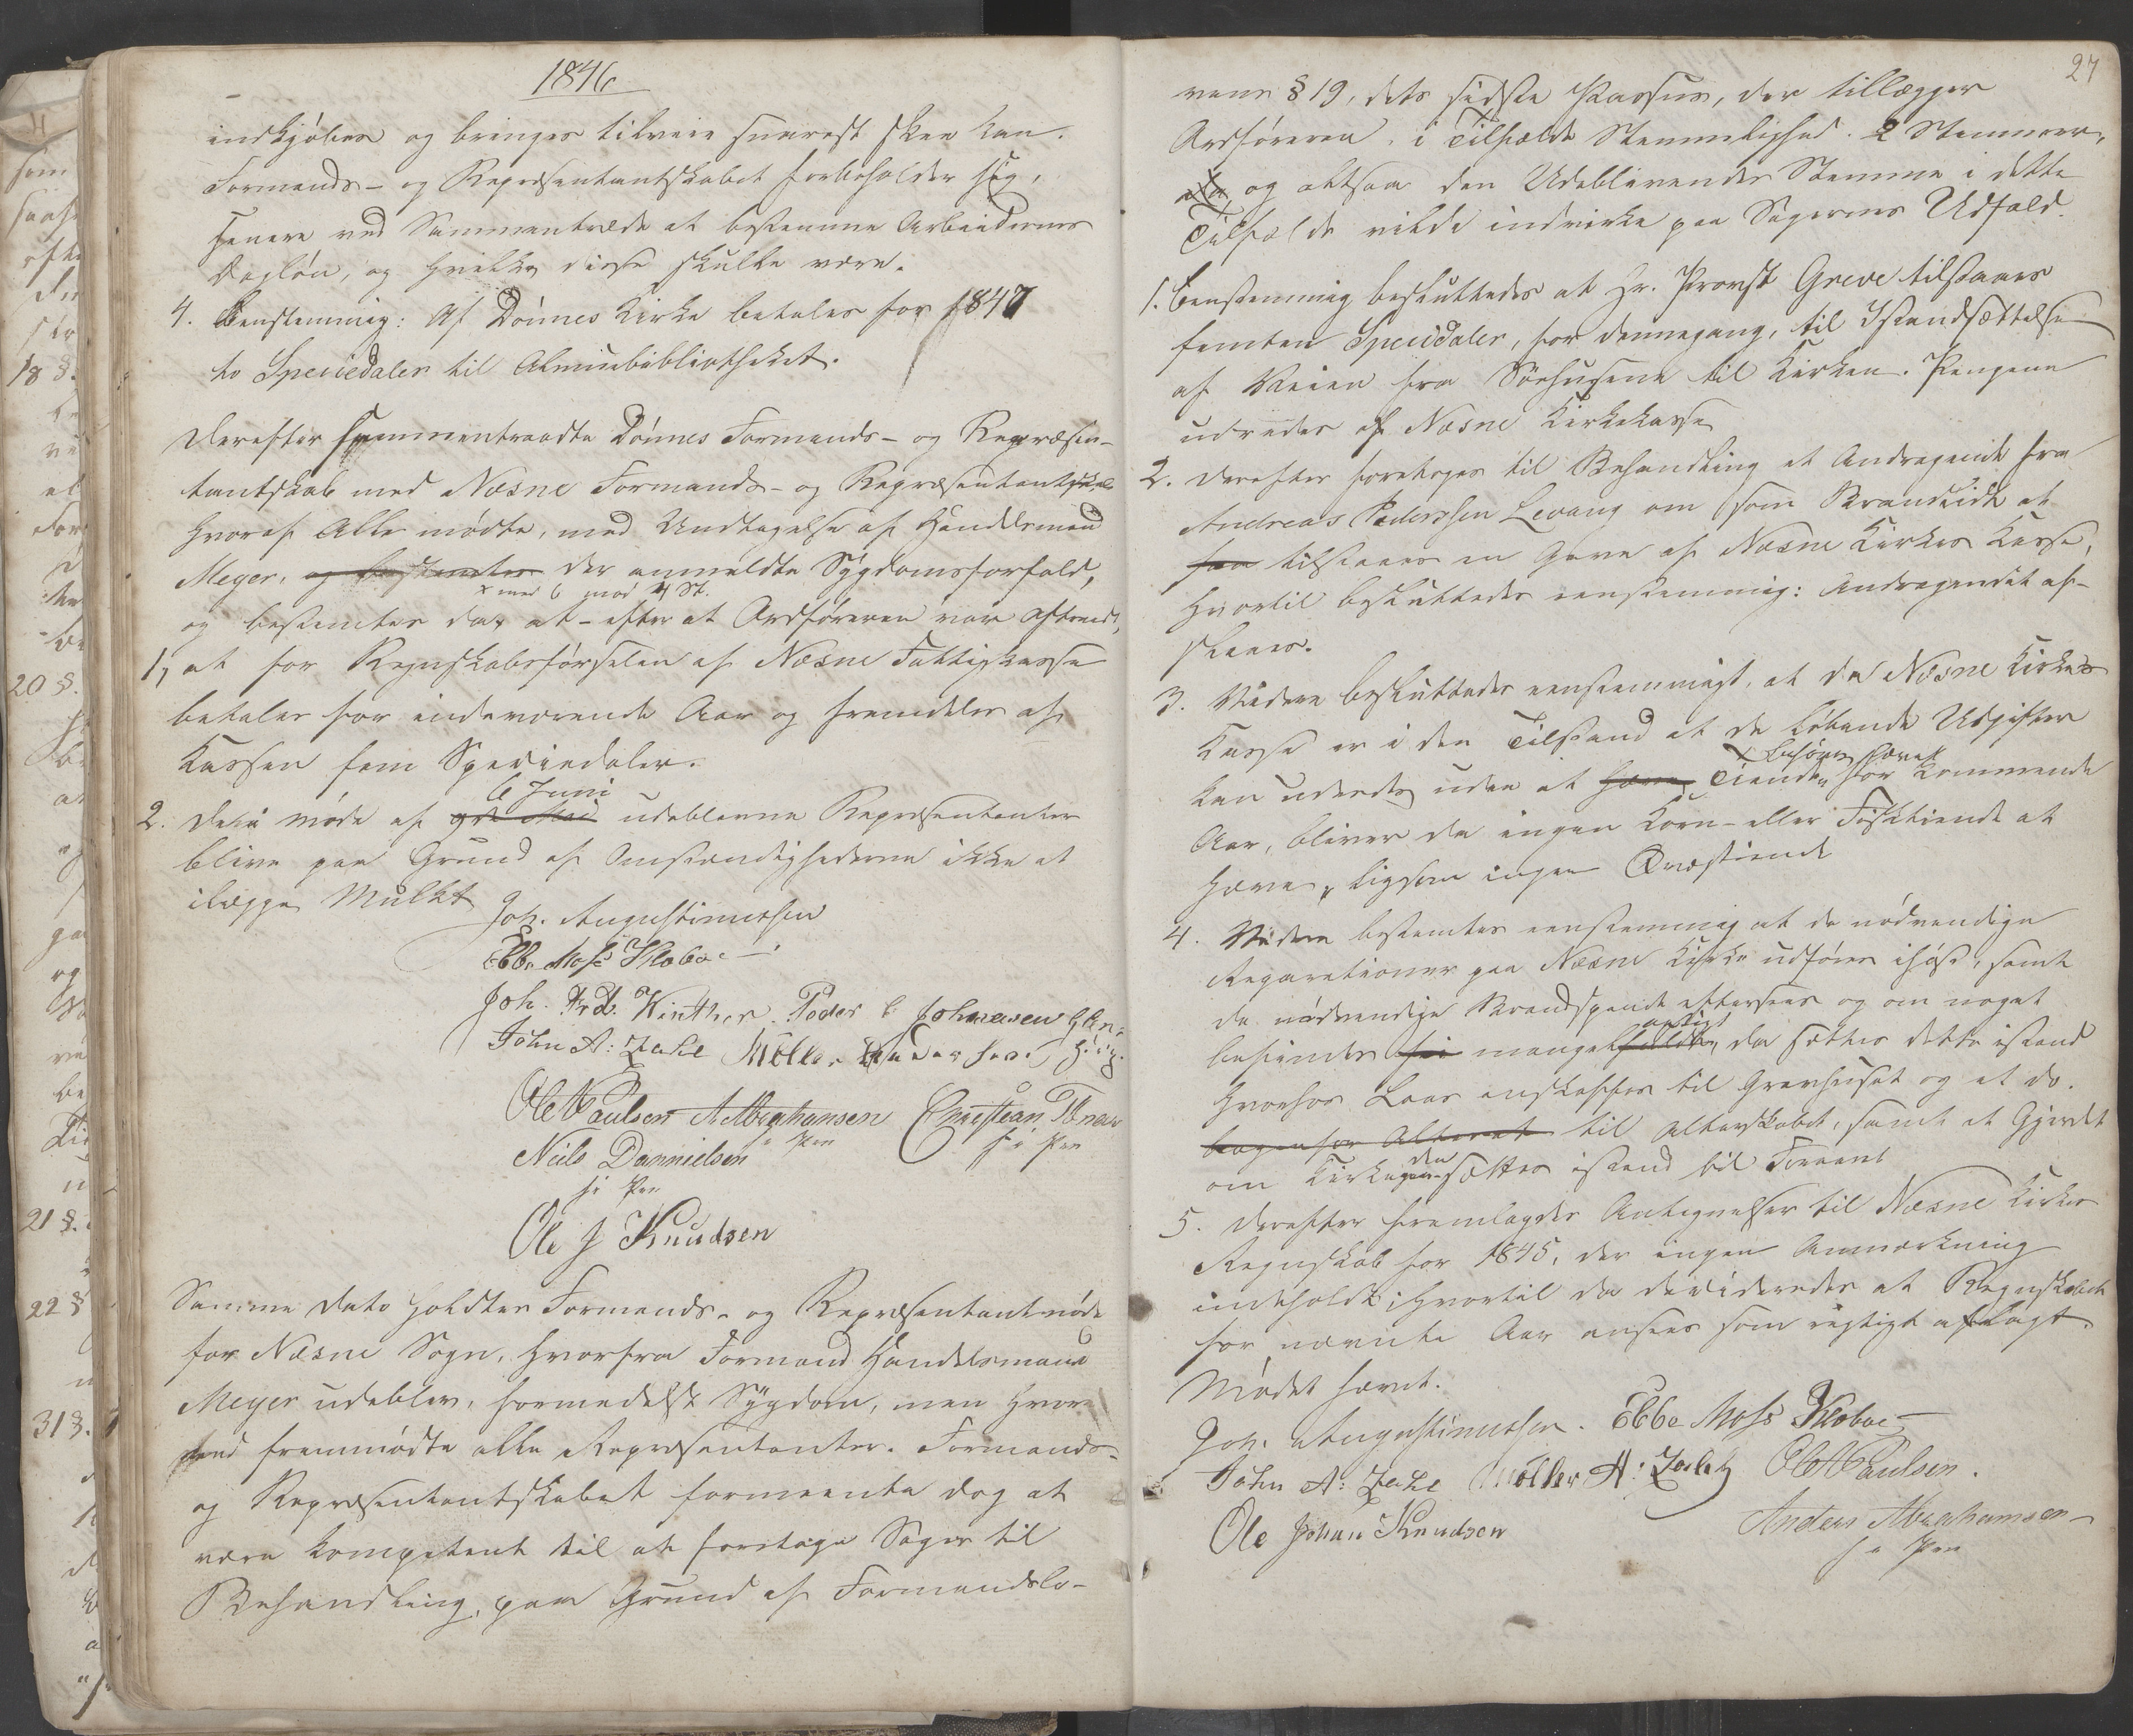 1846
indkjøbes og bringes tilveie snarest skee kan.
Formands- og Repræsentantskabet forbeholder sig,
senere ved Sammentræde at bestemme Arbeidernes
Dagløn, og hvilke disse skulle være.
4. Eenstemmig: Af Dønnes Kirke betales for 1847
to Speciedaler til Almuebibliotheket.
Derefter sammentraadte Dønnes Formands- og Repræsen-
tantskab med Næsne Formands- og Repræsentantskab
hvoraf Alle mødte, med Undtagelse af Handelsmand
Meyer, og bestemtes der anmeldte Sygdomsforfald,
x med 6 mod 4 St.
og bestemtes da x at - efter at Ordføreren var aftraadt,
1, at for Regnskabsførselen af Næsne Fattigkasse
betales for indeværende Aar og fremdeles af
Kassen fem Speciedaler.
6 Juni
2. De i Møde af udeblevne Repræsentanter
blive paa Grund af Omstændighederne ikke at
ilægge Mulkt
Joh. Augustinussen
Ebbe Moss Klæboe
Joh. Frd. Winther. Peder C Johnesen
John A: Zahl Møller
Ole Paulsen A Abrahamsen Christean
Niels Dannielsen i Pen f i Pen
f i Pen
Ole J Knudsen
Samme Dato holdtes Formands- og Repræsentantmøde
for Næsne Sogn, hvorfra Formand Handelsmand
Meyer udeblev, formedelst Sygdom, men hvor-
ved fremmødte alle Repræsentanter. Formands-
og Repræsentantskabet formeente dog at
være kompetent til at foretage Sager til
Behandling, paa Grund af Formandslo-
27
vens § 19, dets sidste Passus, der tillægger
Ordføreren, i Tilfælde Stemmelighed. 2 Stemmer,
og altsaa den Udeblivendes Stemme i dette
Tilfælde vilde indvirke paa Sagernes Udfald.
1. Eenstemmig besluttedes at Hr. Provst Greve tilstaaes
femten Speciedaler, for dennegang, til Istandsættelse
af Veien fra Søehusene til Kirken. Pengene
udredes af Næsne Kirkekasse
2. Derefter foretoges til Behandling et Andragende fra
Andreas Pederssen Levang om som Brandlidt at
faa tilstaaes en Gave af Næsne Kirkes Kasse,
hvortil besluttedes eenstemmig: Andragendet af-
slaaes.
3. Videre besluttedes eenstemmigt, at da Næsne Kirkes
Kasse er i den Tilstand at de løbende Udgifter
behøver hævet
kan udredes uden at hæve Tienden for kommende
Aar, bliver da ingen Korn- eller Fisketiende at
hæve, ligesom ingen Qvægtiende
4. Videre bestemtes eenstemmig at de nødvendige
Reparationer paa Næsne Kirke udføres ihøst, samt
de nødvendige Brandspande eftersees og om noget
befindes mangelagtigt, da sættes dette istand
hvorhos Laas anskaffes til Gravhuset og et do.
bagenfor Alteret til Alterskabet, samt at Gjerdet
om Kirkegaarden sættes istand til Foraaret
5. Derefter fremlagdes Antegnelser til Næsne Kirkes
Regnskab for 1845, der ingen Anmærkning
indeholdt; hvortil da decideredes at Regnskabet
for nævnte Aar ansees som rigtigt aflagt.
Mødet hævet.
Joh. Augustinussen. Ebbe Moss Klæboe
John A: Zahl Møller A: Zahl Ole Paulsen.
Ole Johan Knudsen Anders Abrahamsen
f i Pen